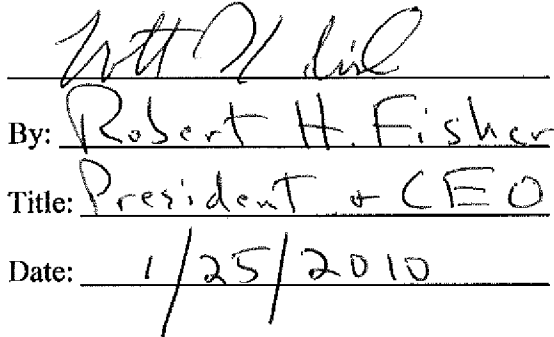 By: Robert H. Fisher
Title: President + CEO
Date: 1/25/2010